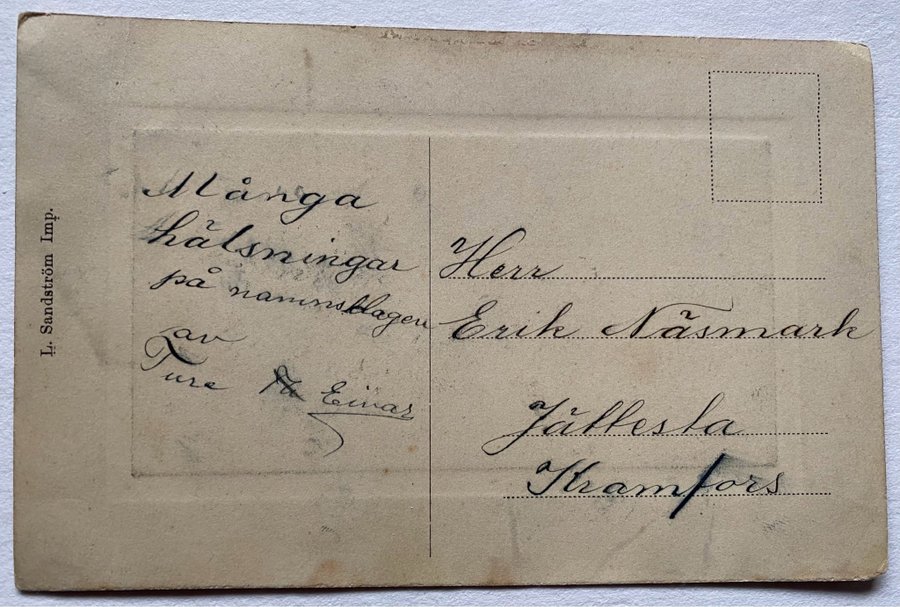 Många
hälsningar
på namnsdagen
av
Ture Einar
Herr
Erik Näsmark
Jättesta
Kramfors
L. Sandström Imp.